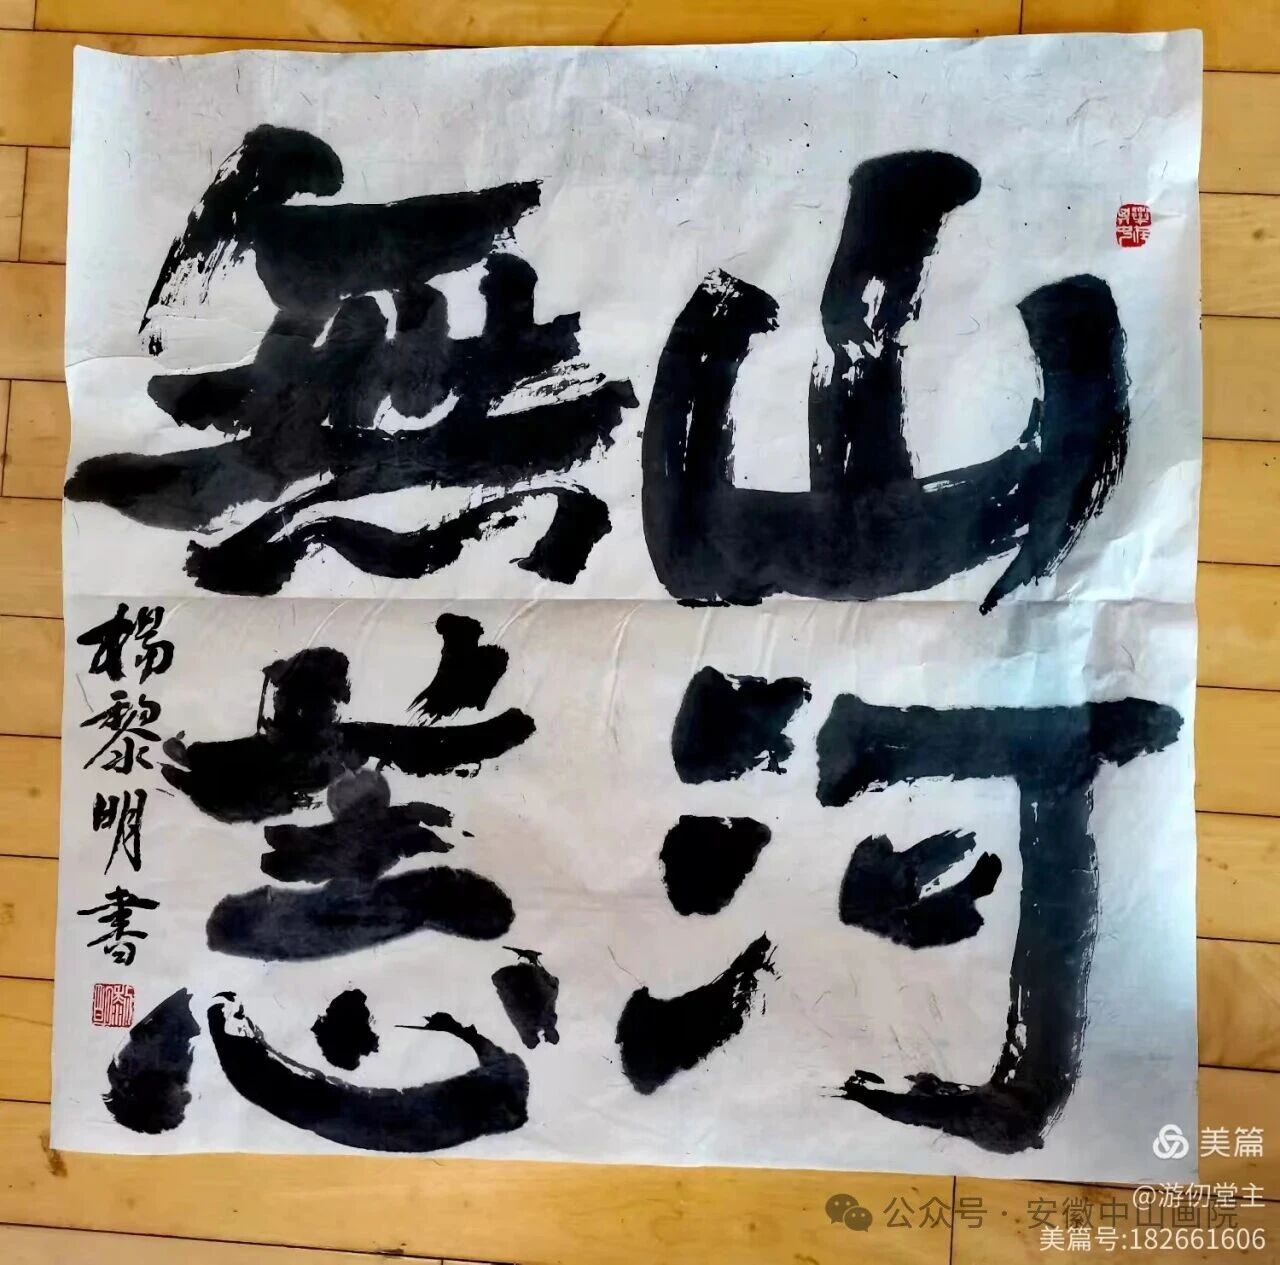 山河
無恙
楊黎明書
美篇
@游仞堂主
公众号·安徽中山画院
美篇号:182661606